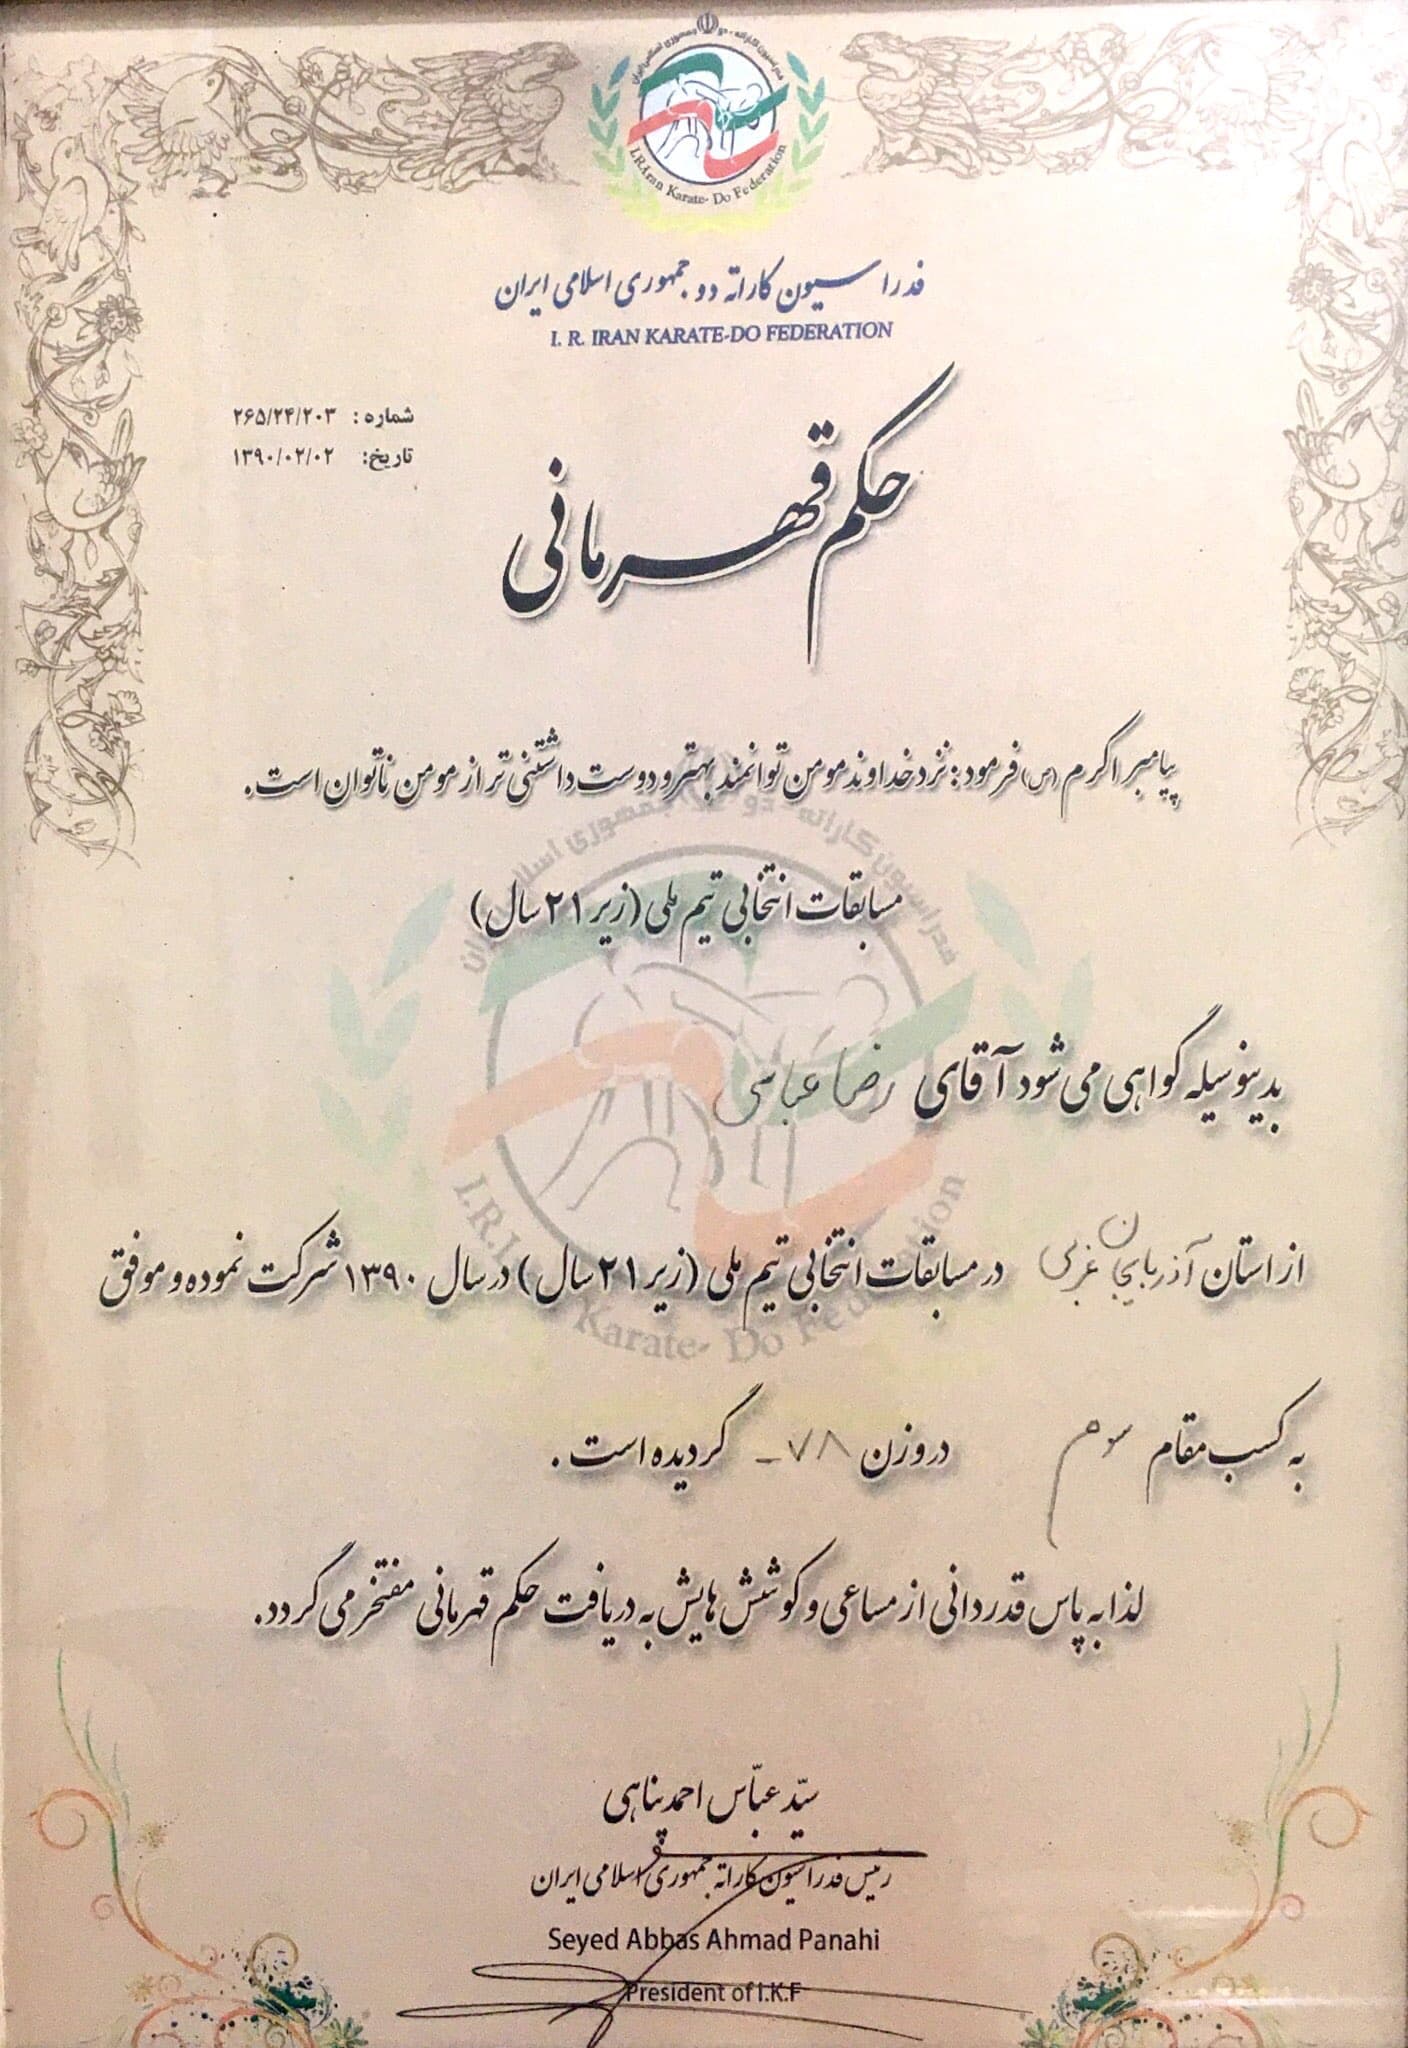 فدراسیون کاراته - دو جمهوری اسلامی ایران
I.R.Iran Karate- Do Federation
فدراسیون کاراته دو جمهوری اسلامی ایران
I. R. IRAN KARATE-DO FEDERATION
شماره : ۲۶۵/۲۴/۲۰۳
تاریخ: ۱۳۹۰/۰۲/۰۲
حکم قهرمانی
پیامبر اکرم (ص) فرمود: نزد خداوند مومن توانمند بهتر و دوست داشتنی تر از مومن ناتوان است.
مسابقات انتخابی تیم ملی (زیر ۲۱ سال)
بدینوسیله گواهی می شود آقای رضا عباسی
از استان آذربایجان غربی در مسابقات انتخابی تیم ملی (زیر ۲۱ سال) در سال ۱۳۹۰ شرکت نموده و موفق
به کسب مقام سوم در وزن ۷۸- گردیده است .
لذا به پاس قدردانی از مساعی و کوشش هایش به دریافت حکم قهرمانی مفتخر می گردد.
سیّد عبّاس احمدپناهی
رئیس فدراسیون کاراته جمهوری اسلامی ایران
Seyed Abbas Ahmad Panahi
President of I.K.F